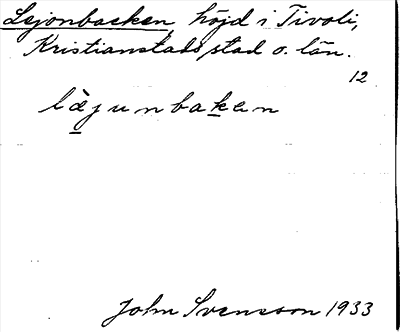 Lejonbacken, höjd i Tivoli,
Kristianstads stad o. län.
12
lä̀junbakan
John Svensson 1933